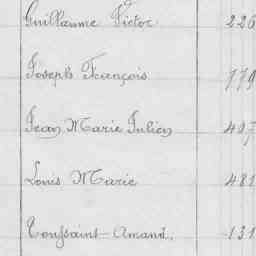 Guillaume Victor 226
Joseph François 779
Jean Marie Julien 407
Louis Marie 481
Toussaint Amand. 131